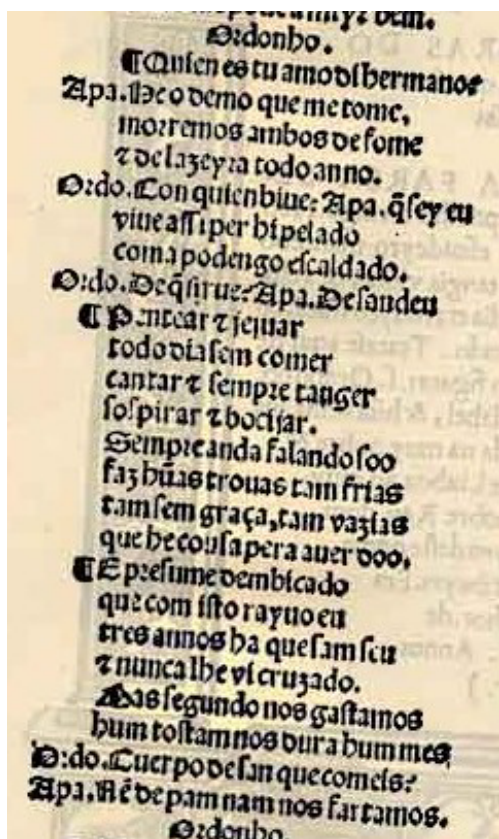 dem.
Ordonho.
¶ Quien es tu amo di hermano
Apa. He o demo que me tome,
morremos ambos de fome
⁊ de lazeyra todo anno.
Ordo. Con quien biue? Apa. q̃ sey eu
viue assi per hi pelado
coma podengo escaldado.
Ordo. De q̃ sirue? Apa. De sandeu
¶ Pentear ⁊ jejuar
todo dia sem comer
cantar ⁊ sempre tanger
sospirar ⁊ bocijar.
Sempre anda falando soo
faz hũas trouas tam frias
tam sem graça, tam vazias
que he cousa pera auer doo.
¶ E presume dembicado
que com isto rayuo eu
tres annos ha que sam seu
⁊ nunca lhe vi cruzado.
Mas segundo nos gastamos
hum tostam nos dura hum mes
Ordo. Cuerpo de san que comeis?
Apa. Nẽ de pam nam nos fartamos.
Ordonho